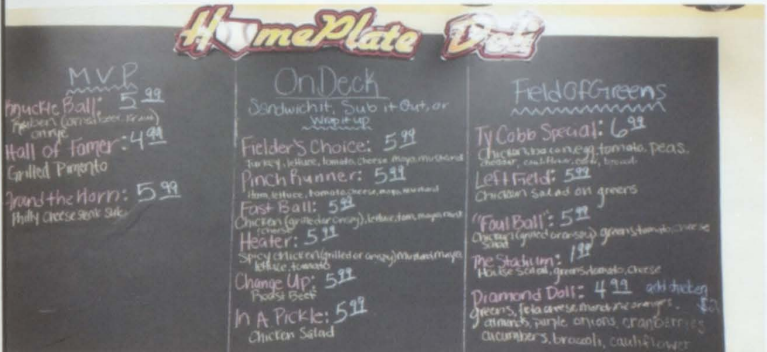 HomePlate Deli
M.V.P.
Knuckle Ball: 5.99
Reuben
on rye
Hall of Famer: 4.99
Grilled Pimento
Round the Horn: 5.99
Philly Cheese Steak Sub
On Deck
Sandwich it, Sub it Out, or
Wrap it up
Fielder's Choice: 5.99
turkey, lettuce, tomato, cheese mayo, mustard
Pinch Runner: 5.99
Ham, lettuce, tomato, cheese, mayo, mustard
Fast Ball: 5.99
Chicken (grilled or crispy), lettuce, tom, mayo, must
cheese
Heater: 5.99
Spicy chicken (grilled or crispy) mustard mayo,
lettuce, tomato
Change Up: 5.99
Roast Beef
In A Pickle: 5.99
Chicken Salad
Field Of Greens
Ty Cobb Special: 6.99
Chicken, bacon, egg, tomato, peas,
cheddar, cauliflower,
Left Field: 5.99
Chicken Salad on greens
"Foul Ball": 5.99
Chicken (grilled or crispy) greens, tomato, cheese
The Stadium: 1.99
House Salad, greens, tomato, cheese
Diamond Doll: 4.99 add chicken
greens, feta cheese, mandarine oranges, $2
almonds, purple onions, cranberries
cucumbers, broccoli, cauliflower